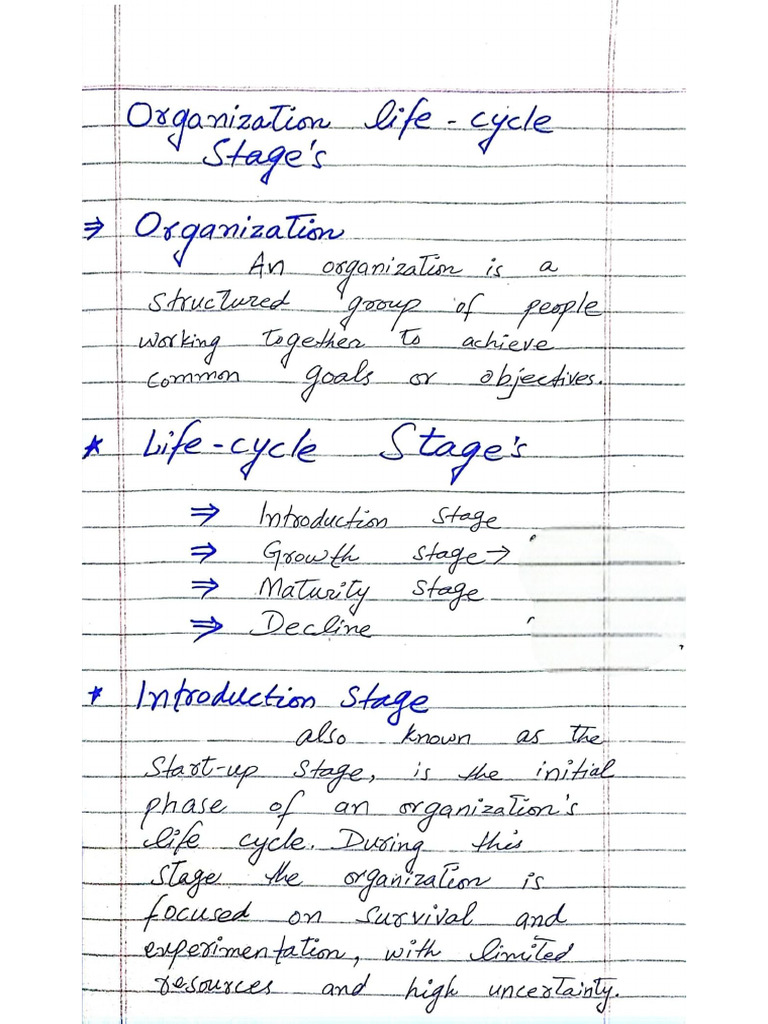 Organization life-cycle
Stage's
⇒ Organization
An organization is a
structured group of people
working together to achieve
common goals or objectives.
* Life-cycle Stage's
⇒ Introduction Stage
⇒ Growth Stage →
⇒ Maturity Stage
⇒ Decline
* Introduction Stage
also known as the
Start-up Stage, is the initial
phase of an organization's
life cycle. During this
stage the organization is
focused on survival and
experimentation, with limited
resources and high uncertainty.